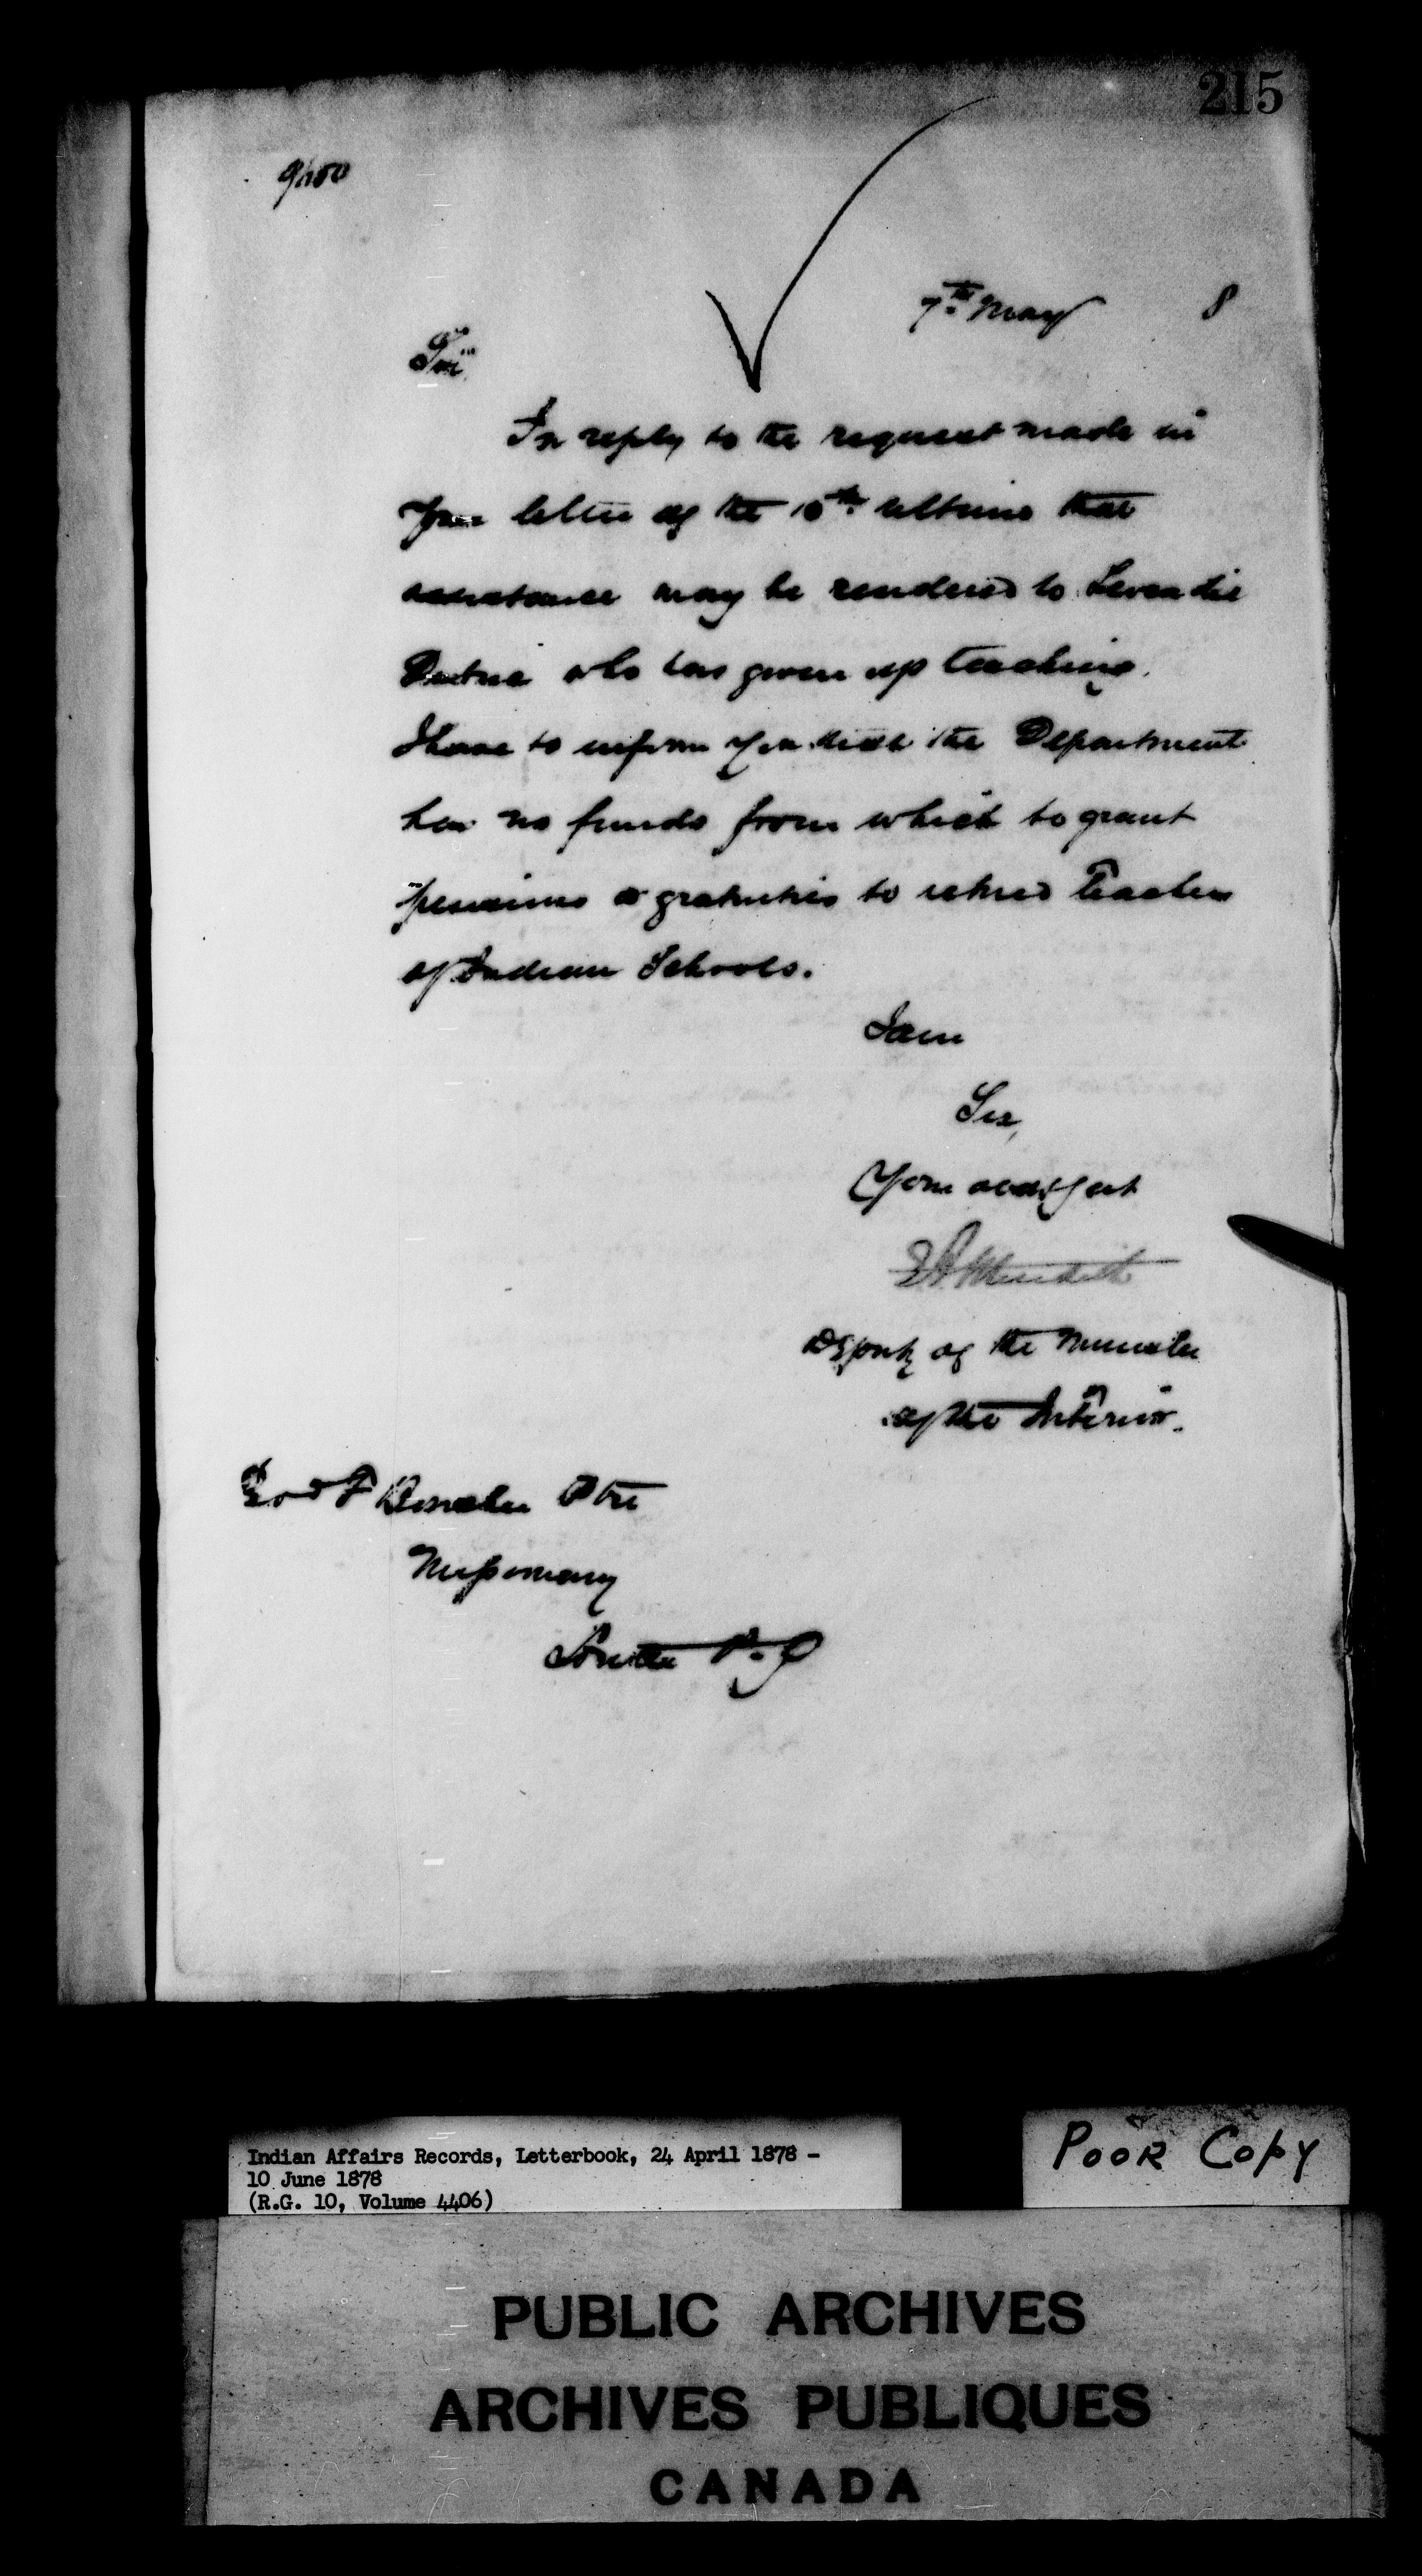 215
7th May 8
Sir
In reply to the request made in
your letter of the 10th ultimo that
assistance may be rendered to
who has given up teaching.
I have to inform you that the Department
has no funds from which to grant
pensions or gratuities to retired teachers
of Indian Schools.
I am
Sir,
Your obedt Servt
E A Meredith
Deputy of the Minister
of the Interior.
Ptre
Missionary
Lorette P.Q
Indian Affairs Records, Letterbook, 24 April 1878 -
10 June 1878
(R.G. 10, Volume 4406)
POOR COPY
PUBLIC ARCHIVES
ARCHIVES PUBLIQUES
CANADA